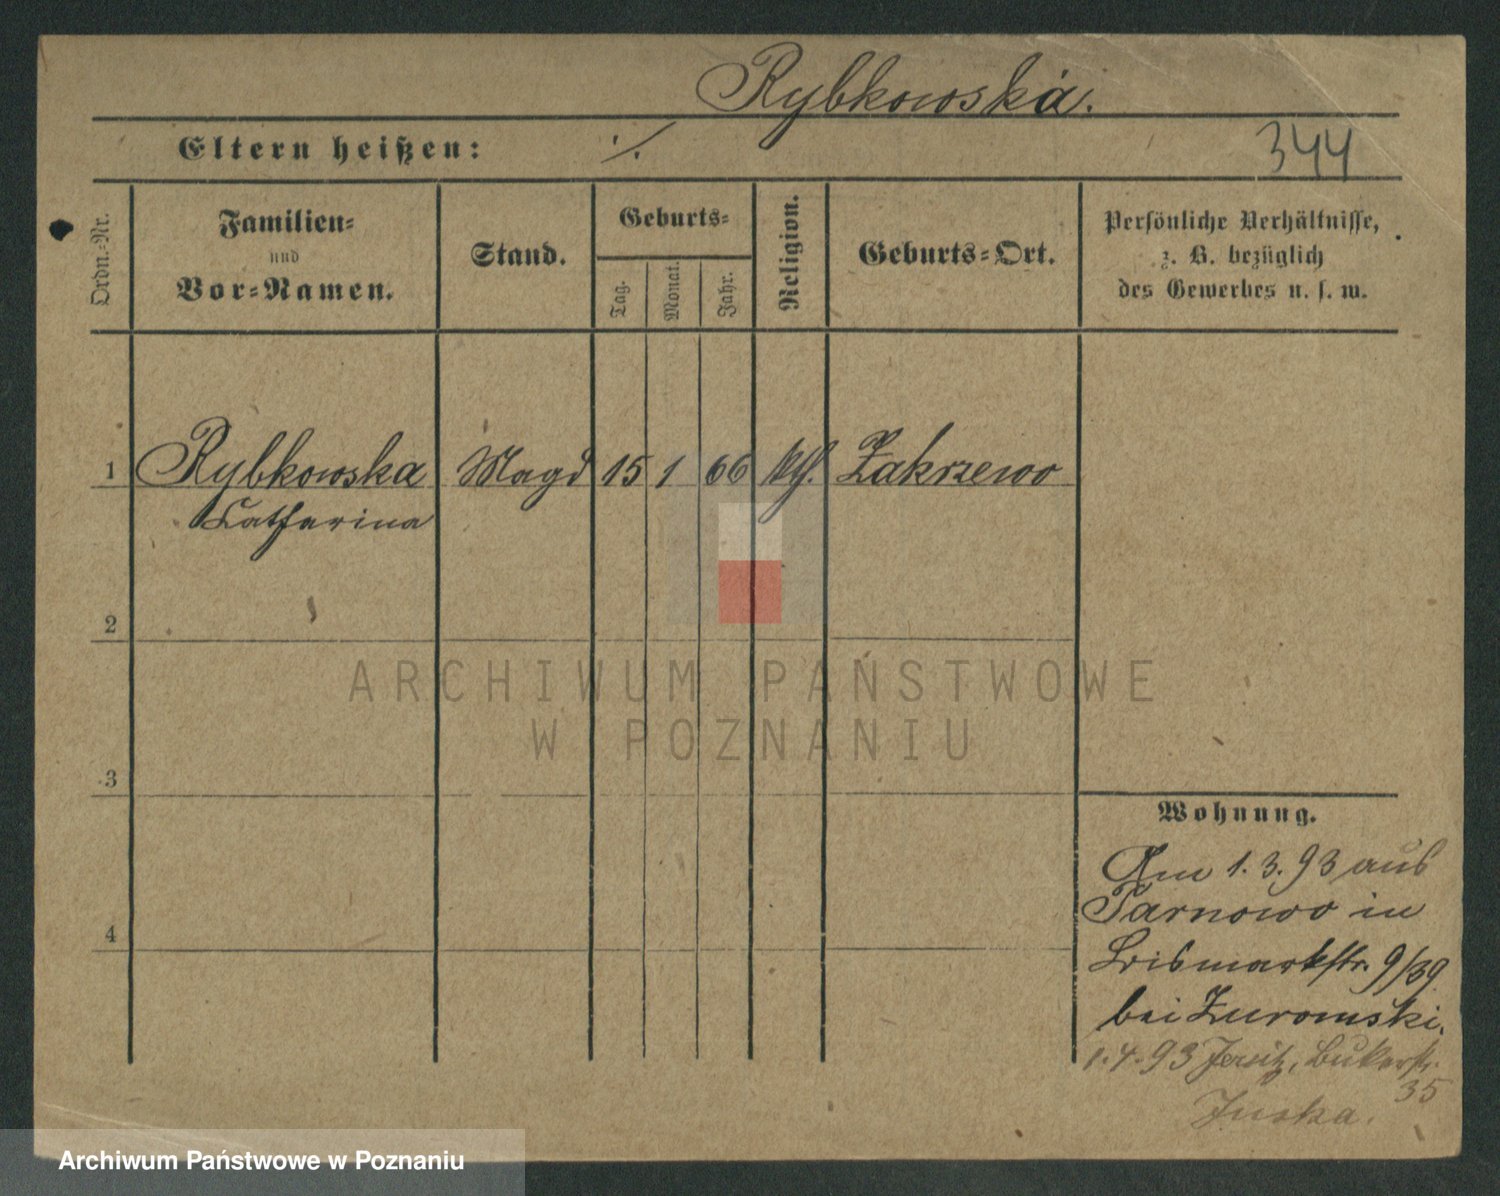 Rybkowska.
Eltern heißen: ·/.
344
Ordn.-Nr.
Familien-
und
Vor-Namen.
Stand.
Geburts-
Tag.
Monat.
Jahr.
Religion.
Geburts-Ort.
Persönliche Verhältnisse,
z. B. bezüglich
des Gewerbes u. s. w.
1 Rybkowska Magd 15 1 66 kth. Zakrzewo
Catharina
2
3
4
Wohnung.
Am 1.3.93 aus
Tarnowo in
Bismarkstr. 9/39
bei Zuromski.
1.4.93 Jersitz, Bukerstr.
35
Juska.
ARCHIWUM PAŃSTWOWE
W POZNANIU
Archiwum Państwowe w Poznaniu